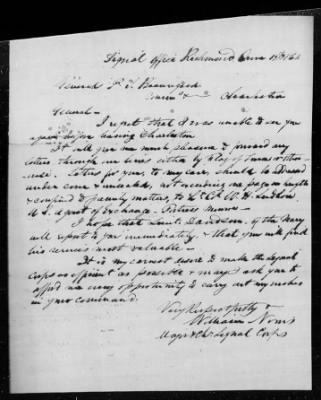 Signal Office Richmond June 13th 63
General G. T. Beauregard
Charleston
General -
I regret that I was unable to see you
again before leaving Charleston.
It will give me much pleasure to forward any
letters through our lines either by Flag of Truce or other-
wise. Letters for yours, to my care, should be addressed
under cover & unsealed, not exceeding one page in length
& confined to family matters, to Lt Col W. H. Ludlow
U. S. Agent of Exchange. Fortress Monroe -
I hope that Lieut. Davidson, of the Navy
will report to you immediately, & that you will find
his services most valuable -
It is my earnest desire to make the Signal
Corps as efficient as possible & may I ask you to
afford me every opportunity to carry out my wishes
in your command.
Very Respectfully &
William Norris
Major & Chf Signal Corps